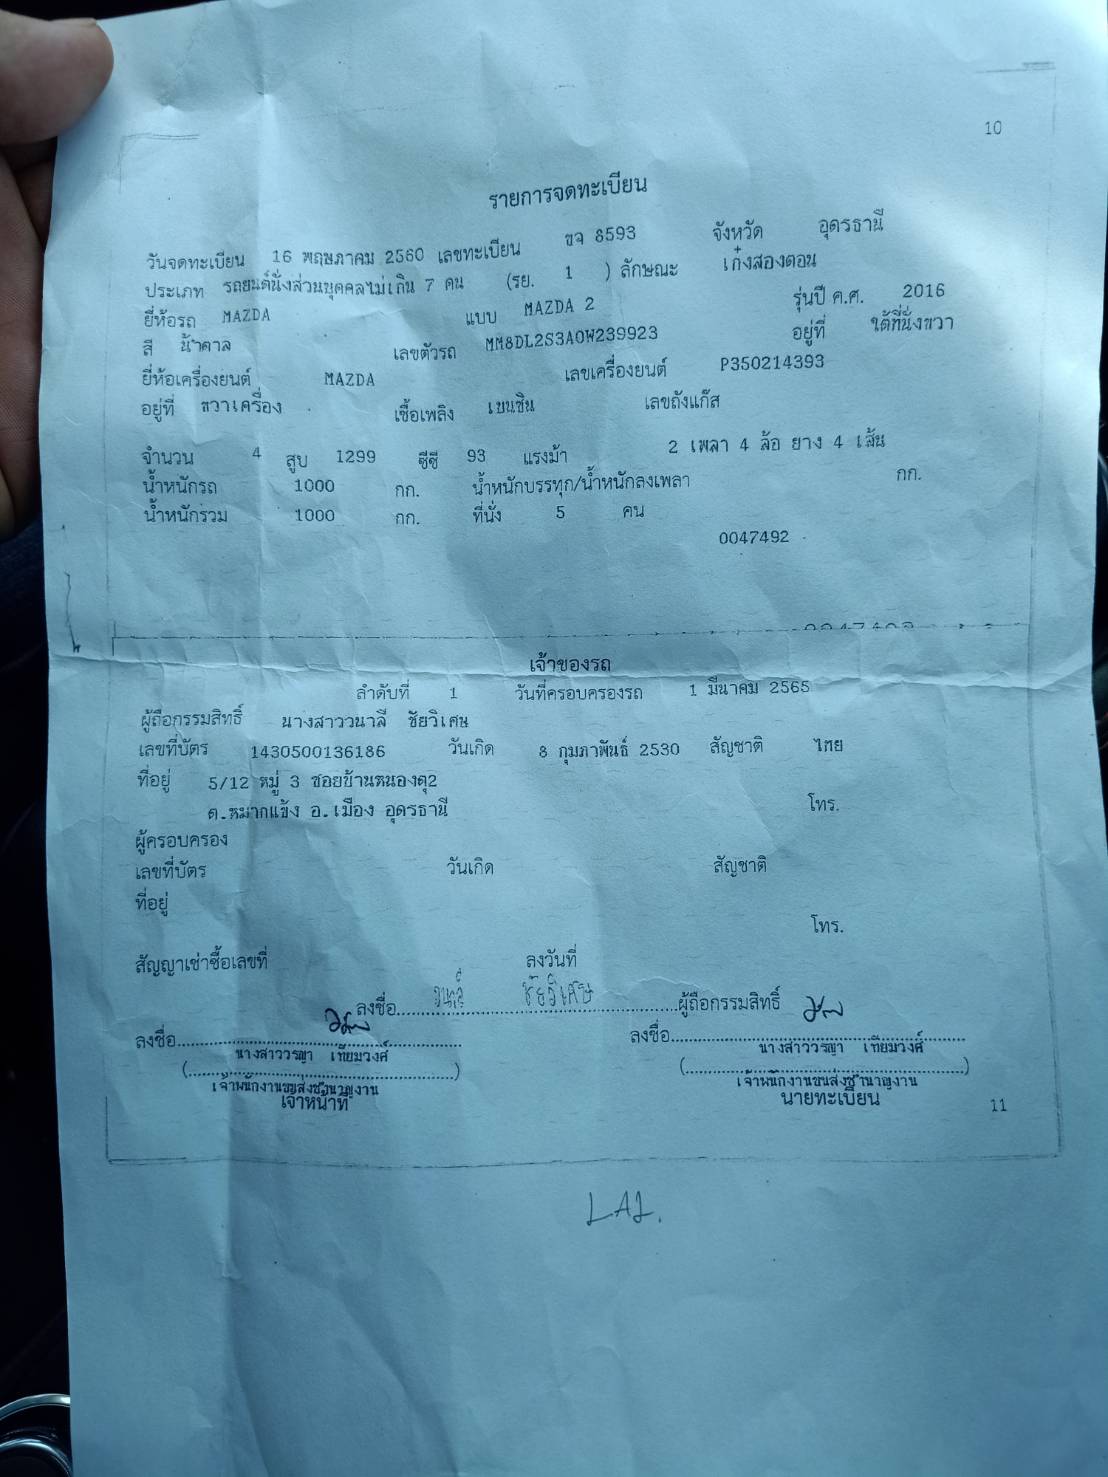 10
รายการจดทะเบียน
วันจดทะเบียน 16 พฤษภาคม 2560 เลขทะเบียน ขจ 8593 จังหวัด อุดรธานี
ประเภท รถยนต์นั่งส่วนบุคคลไม่เกิน 7 คน (รย. 1 ) ลักษณะ เก๋งสองตอน
ยี่ห้อรถ MAZDA แบบ MAZDA 2 รุ่นปี ค.ศ. 2016
สี น้ำตาล เลขตัวรถ MM8DL2S3A0W239923 อยู่ที่ ใต้ที่นั่งขวา
ยี่ห้อเครื่องยนต์ MAZDA เลขเครื่องยนต์ P350214393
อยู่ที่ ขวาเครื่อง เชื้อเพลิง เบนซิน เลขถังแก๊ส
จำนวน 4 สูบ 1299 ซีซี 93 แรงม้า 2 เพลา 4 ล้อ ยาง 4 เส้น
น้ำหนักรถ 1000 กก. น้ำหนักบรรทุก/น้ำหนักลงเพลา กก.
น้ำหนักรวม 1000 กก. ที่นั่ง 5 คน
0047492
เจ้าของรถ
ลำดับที่ 1 วันที่ครอบครองรถ 1 มีนาคม 2565
ผู้ถือกรรมสิทธิ์ นางสาววนาลี ชัยวิเศษ
เลขที่บัตร 1430500136186 วันเกิด 8 กุมภาพันธ์ 2530 สัญชาติ ไทย
ที่อยู่ 5/12 หมู่ 3 ซอยบ้านหนองตุ2
ต.หมากแข้ง อ.เมือง อุดรธานี โทร.
ผู้ครอบครอง
เลขที่บัตร วันเกิด สัญชาติ
ที่อยู่
โทร.
สัญญาเช่าซื้อเลขที่ ลงวันที่
ลงชื่อ วนาลี ชัยวิเศษ ผู้ถือกรรมสิทธิ์
ลงชื่อ ลงชื่อ
นางสาววรญา เทียมวงศ์ นางสาววรญา เทียมวงศ์
( ) ( )
เจ้าพนักงานขนส่งชำนาญงาน เจ้าพนักงานขนส่งชำนาญงาน
เจ้าหน้าที่ นายทะเบียน
11